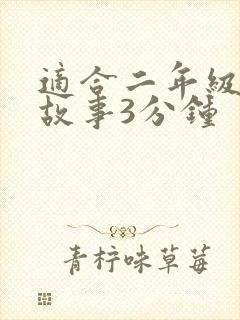 適合二年級
故事3分鐘
青柠味草莓